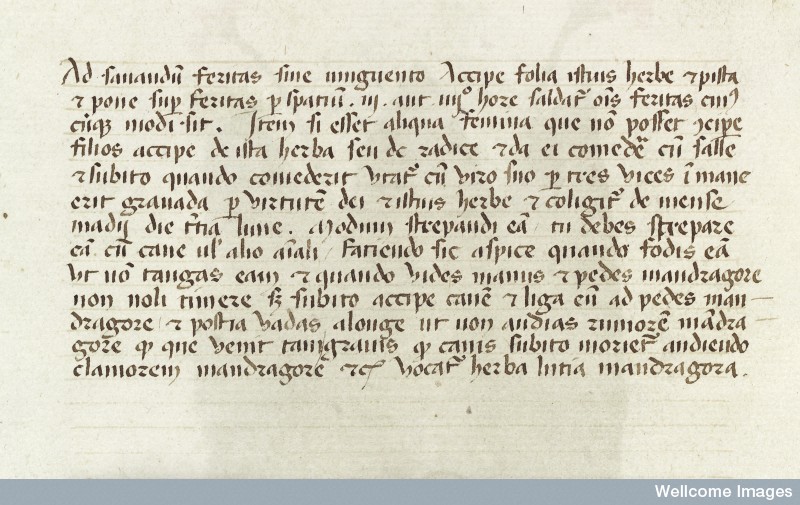 Ad sanandū feritas sine unguento Accipe folia istius herbe ⁊ pista
⁊ pone sup feritas p spatiū .iij. aut iiijᵒ hore saldat oīs feritas cuiꝰ
cūqꝫ modi sit. Item si esset aliqua femina que nō posset ꝯcipe
filios accipe de ista herba seu de radice ⁊ da ei comedē cū salse
⁊ subito quando comederit utat cū viro suo p tres vices ī mane
erit gravada p virtutē dei ⁊ istius herbe ⁊ coligit de mense
madij die tītia lune. Modum strepandi eā tu debes strepare
eā cū cane ul alio aīali faciendo sic aspice quando fodis eā
ut nō tangas eam ⁊ quando vides manus ⁊ pedes mandragore
non noli timere sꝫ subito accipe canē ⁊ liga eū ad pedes man-
dragore ⁊ postia vadas alonge ut non audias rumorē mādra-
gore que venit tam gravis canis subito moriet audiendo
clamorem mandragore vocat herba lutia mandragora.
Wellcome Images